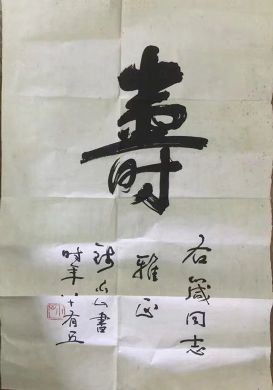 壽
右箴同志
雅正
山書
时年八十有五